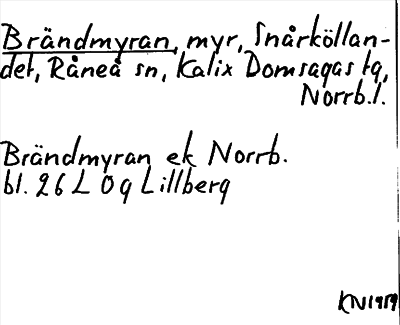 Brändmyran, myr, Snårköllan-
det, Råneå sn, Kalix Domsagas tg,
Norrb.l.
Brändmyran ek Norrb.
bl. 26 L 0g Lillberg
KN 1919